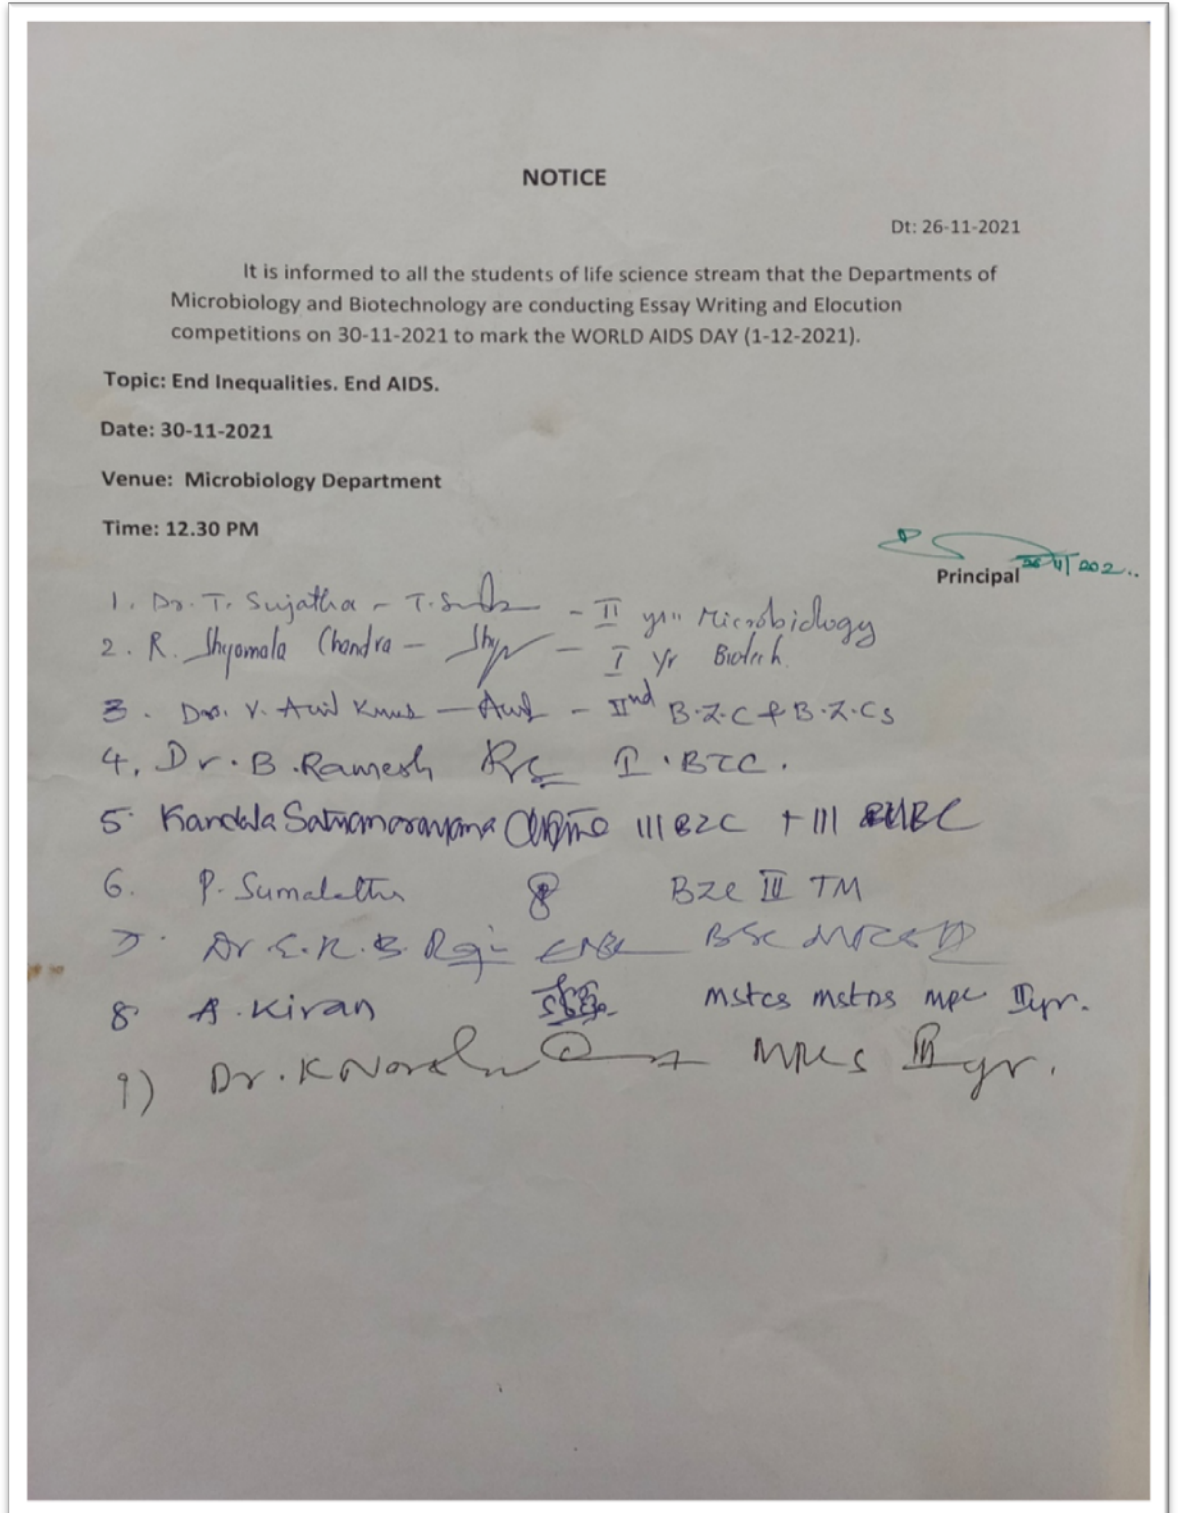 NOTICE
Dt: 26-11-2021
It is informed to all the students of life science stream that the Departments of
Microbiology and Biotechnology are conducting Essay Writing and Elocution
competitions on 30-11-2021 to mark the WORLD AIDS DAY (1-12-2021).
Topic: End Inequalities. End AIDS.
Date: 30-11-2021
Venue: Microbiology Department
Time: 12.30 PM
Principal
1. Dr. T. Sujatha - - II Microbiology
2. R. Shyamala Chandra - - I Yr Biotech.
3. V. - - IInd B.Z.C & B.Z.Cs
4. Dr. B. Ramesh I.
5. Kandala Satyanarayana III BZC + III
6. P. Sumalatha BZC III TM
7. Dr S.R.B. Raju BSc
8 A. Kiran mstcs mstds mpc IIyr.
9) Dr. K MPCs III yr.